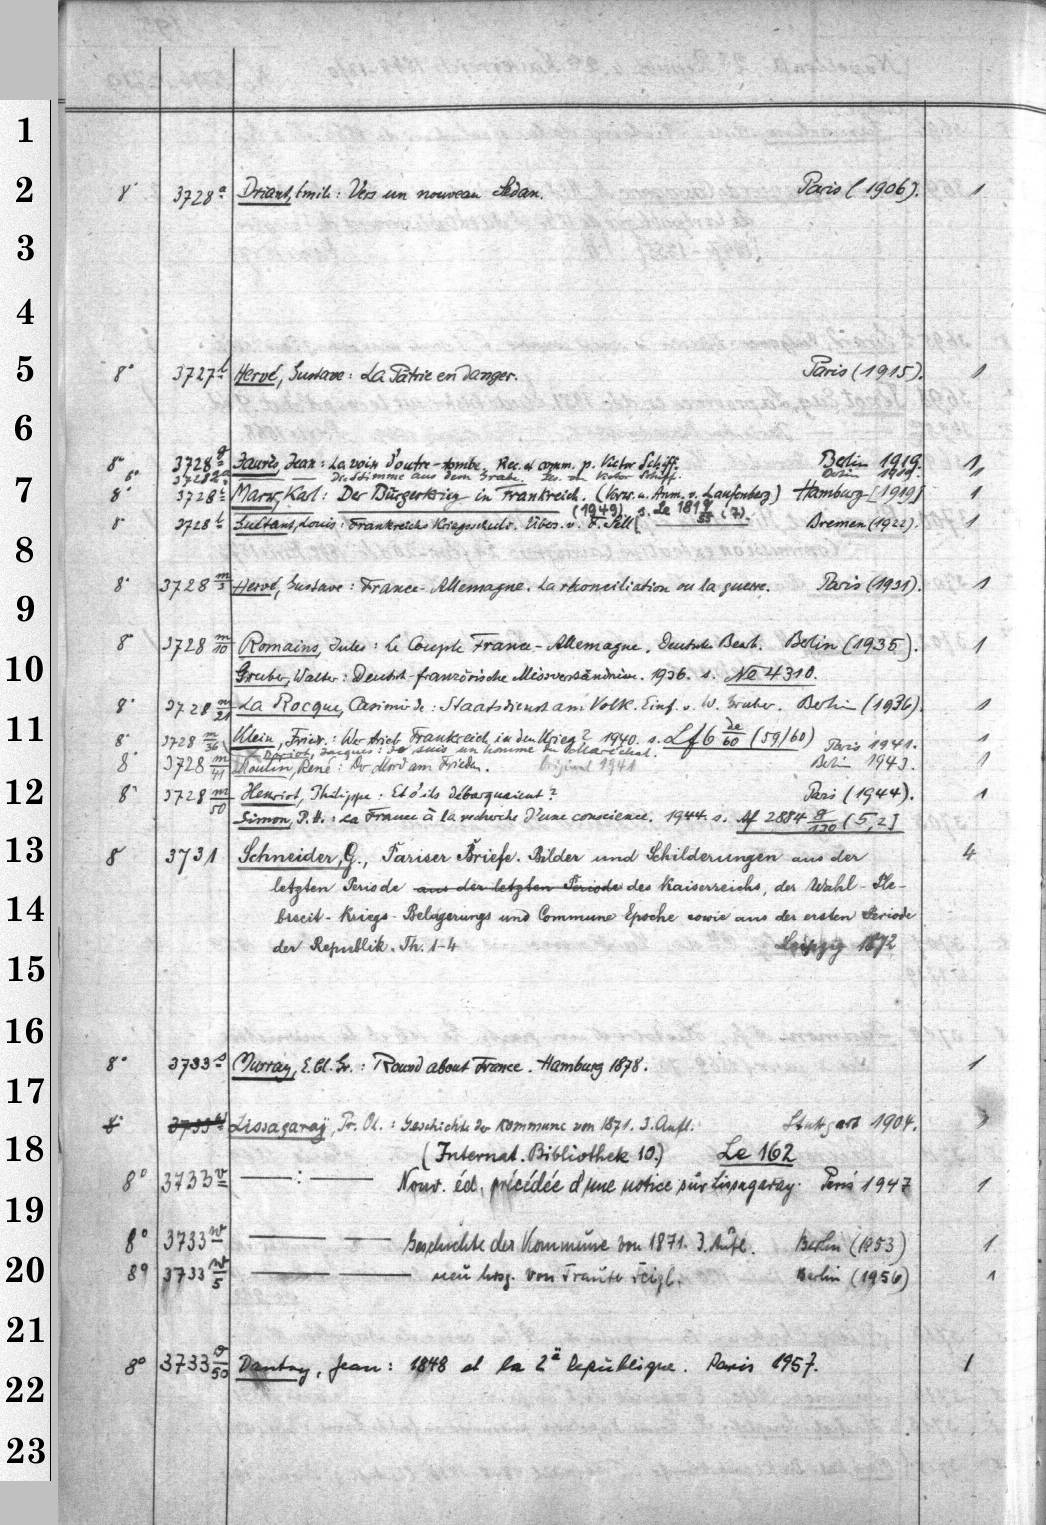 1
2 8° 3728 a Driant, Emile: Vers un nouveau Sedan. Paris (1906). 1
3
4
5 8° 3727 Hervé, Gustave: La Patrie en danger. Paris (1915). 1
6
8° 3728 g Jaurès, Jean: La voix d'outre-tombe. Rec. et comm. p. Victor Schiff. Berlin 1919. 1
8° 3728 Die Stimme aus dem Grabe. Victor Schiff. Berlin 1919. 1
7 8° 3728 Marx, Karl: Der Bürgerkrieg in Frankreich. (Vorw. u. Anm. v. Laufenberg) Hamburg [1919] 1
(1949) s. Le 181 9/55 (7).
8° 3728 Louis: Frankreichs Kriegsschuld. Uebers. v. F. Sell Bremen (1922). 1
8
8° 3728 m/5 Hervé, Gustave: France-Allemagne. La réconciliation ou la guerre. Paris (1931). 1
9
8° 3728 m/10 Romains, Jules: Le Couple France-Allemagne. Deutsche Bearb. Berlin (1935). 1
10 Gruber, Walter: Deutsch-französische Missverständnisse. 1936. s. Ne 4310.
8° 3728 m/21 La Rocque, Casimir de: Staatsdienst am Volk. Einf. v. W. Gruber. Berlin (1936). 1
11 Klein, Friedr.: Wer trieb Frankreich in den Krieg? 1940. s. Lf 6 de/60 (59/60)
8° 3728 m/36 Doriot, Jacques: Je suis un homme du Maréchal. Paris 1941. 1
8° 3728 m/41 Roulin, René: Der Mord am Frieden. Original 1941 Berlin 1943. 1
12 8° 3728 m/50 Henriot, Philippe: Et s'ils débarquaient? Paris (1944). 1
Simon, P. H.: La France à la recherche d'une conscience. 1944. s. Af 2884 g/120 (5,2]
13 8 3731 Schneider, G., Pariser Briefe. Bilder und Schilderungen aus der 4
letzten Periode aus der letzten Periode des Kaiserreichs, der Wahl- Ple-
14 biscit- Kriegs- Belagerungs und Commune Epoche sowie aus der ersten Periode
der Republik. Th. 1-4 Leipzig 1872
15
16
8° 3733 s Murray, E. Cl. Gr.: Round about France. Hamburg 1878. 1
17
8° 3733 Lissagaray, Pr. Ol.: Geschichte der Kommune von 1871. 3. Aufl. Stuttgart 1904.
18 (Internat. Bibliothek 10.) Le 162
8° 3733 v — : — Nouv. éd. précédée d'une notice sur Lissagaray. Paris 1947 1
19
8° 3733 w — — Geschichte der Kommune von 1871. 3. Aufl. Berlin (1953) 1
20 8° 3733 w/5 — — neu hrsg. von Traute Feigl. Berlin (1956) 1
21
8° 3733 /50 Dautry, Jean: 1848 et la 2e République. Paris 1957. 1
22
23